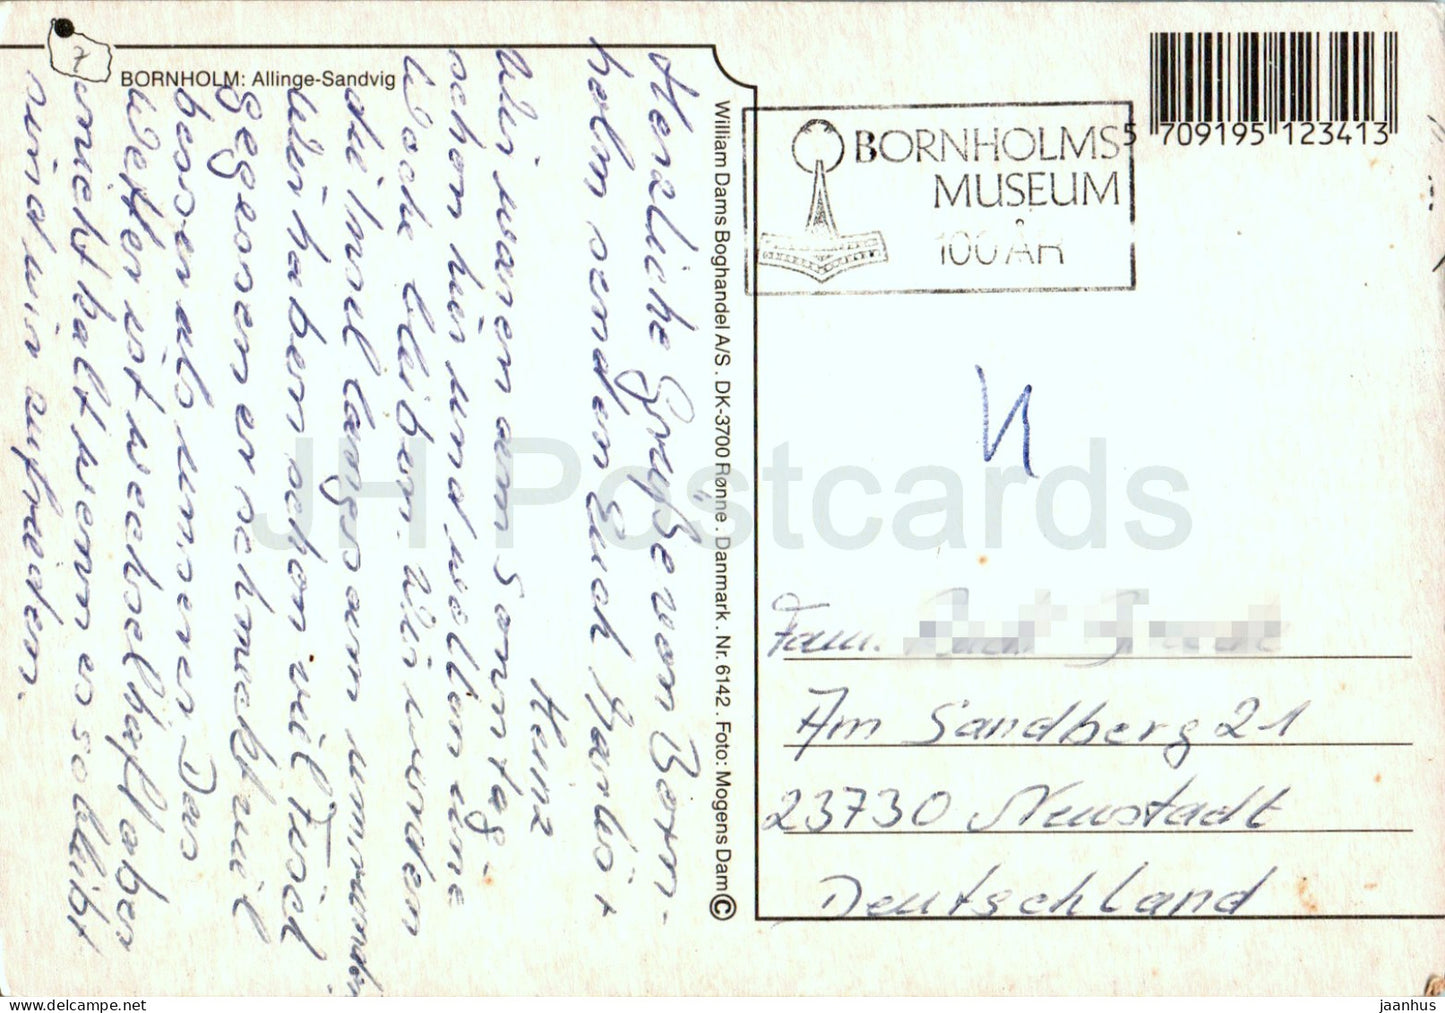 BORNHOLM: Allinge-Sandvig
7
Herzliche Grüße von Born-
holm senden Euch Marlis +
Heinz
Wir waren am Sonntag
schon hier und wollen eine
Woche bleiben. Wir werden
die Insel langsam umrunden
Wir haben schon viel Fisch
gegessen er schmeckt viel
besser als unserer Das
Wetter ist wechselhaft aber
nicht kalt wenn es so bleibt
sind wir zufrieden.
William Dams Boghandel A/S . DK-3700 Rønne . Danmark . Nr. 6142 . Foto: Mogens Dam ©
BORNHOLMS
MUSEUM
100 ÅR
5 709195 123413
Fam.
Am Sandberg 21
23730 Neustadt
Deutschland
JH Postcards
www.delcampe.net
jaanhus